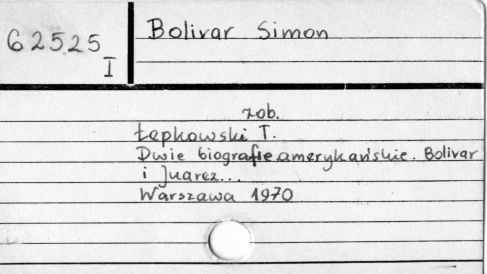 62525
I
Bolivar Simon
zob.
Łepkowski T.
Dwie biografie amerykańskie. Bolivar
i Juarez...
Warszawa 1970